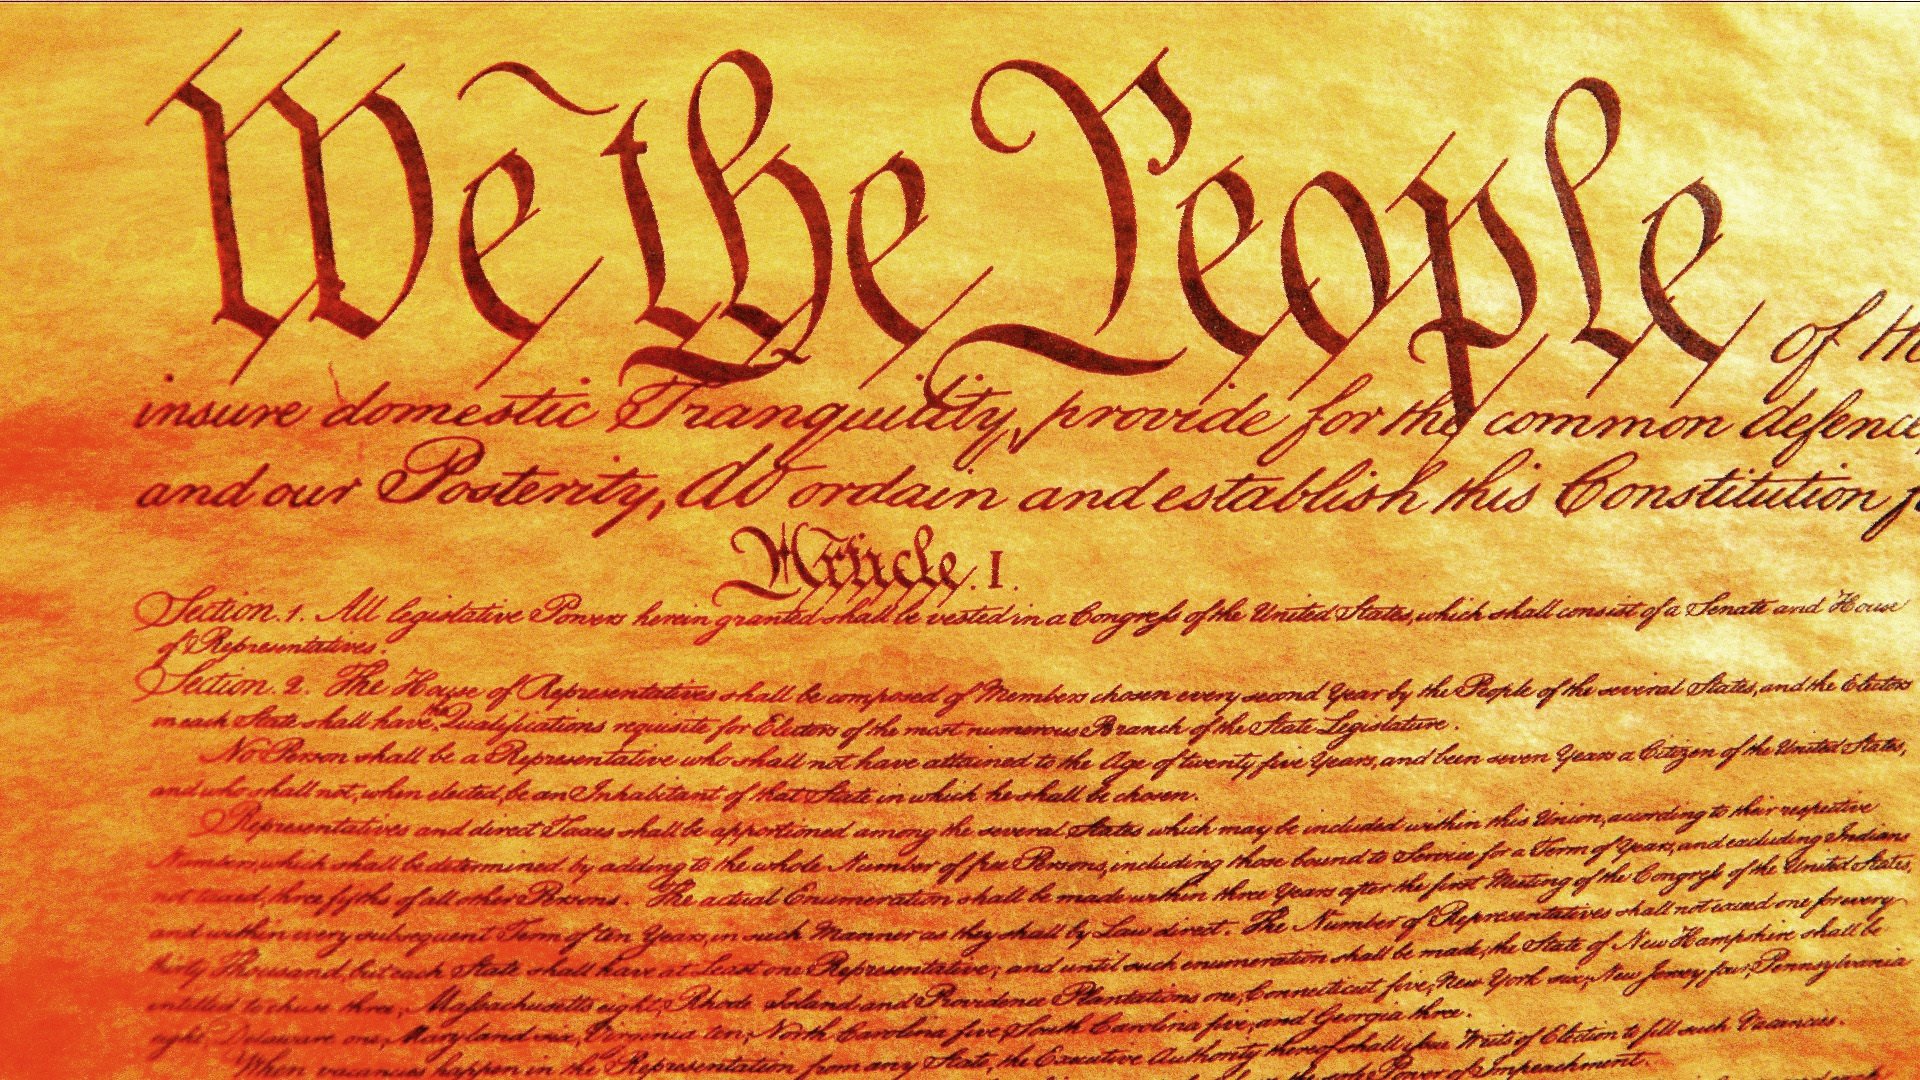 We the People of th
insure domestic Tranquility, provide for the common defence,
and our Posterity, do ordain and establish this Constitution f
Article. I.
Section. 1. All legislative Powers herein granted shall be vested in a Congress of the United States, which shall consist of a Senate and House
of Representatives.
Section. 2. The House of Representatives shall be composed of Members chosen every second Year by the People of the several States, and the Electors
in each State shall have the Qualifications requisite for Electors of the most numerous Branch of the State Legislature.
No Person shall be a Representative who shall not have attained to the Age of twenty five Years, and been seven Years a Citizen of the United States,
and who shall not, when elected, be an Inhabitant of that State in which he shall be chosen.
Representatives and direct Taxes shall be apportioned among the several States which may be included within this Union, according to their respective
Numbers, which shall be determined by adding to the whole Number of free Persons, including those bound to Service for a Term of Years, and excluding Indians
not taxed, three fifths of all other Persons. The actual Enumeration shall be made within three Years after the first Meeting of the Congress of the United States,
and within every subsequent Term of ten Years, in such Manner as they shall by Law direct. The Number of Representatives shall not exceed one for every
thirty Thousand, but each State shall have at Least one Representative; and until such enumeration shall be made, the State of New Hampshire shall be
entitled to chuse three, Massachusetts eight, Rhode Island and Providence Plantations one, Connecticut five, New York six, New Jersey four, Pennsylvania
eight, Delaware one, Maryland six, Virginia ten, North Carolina five, South Carolina five, and Georgia three.
When vacancies happen in the Representation from any State, the Executive Authority thereof shall issue Writs of Election to fill such Vacancies.
the sole Power of Impeachment.